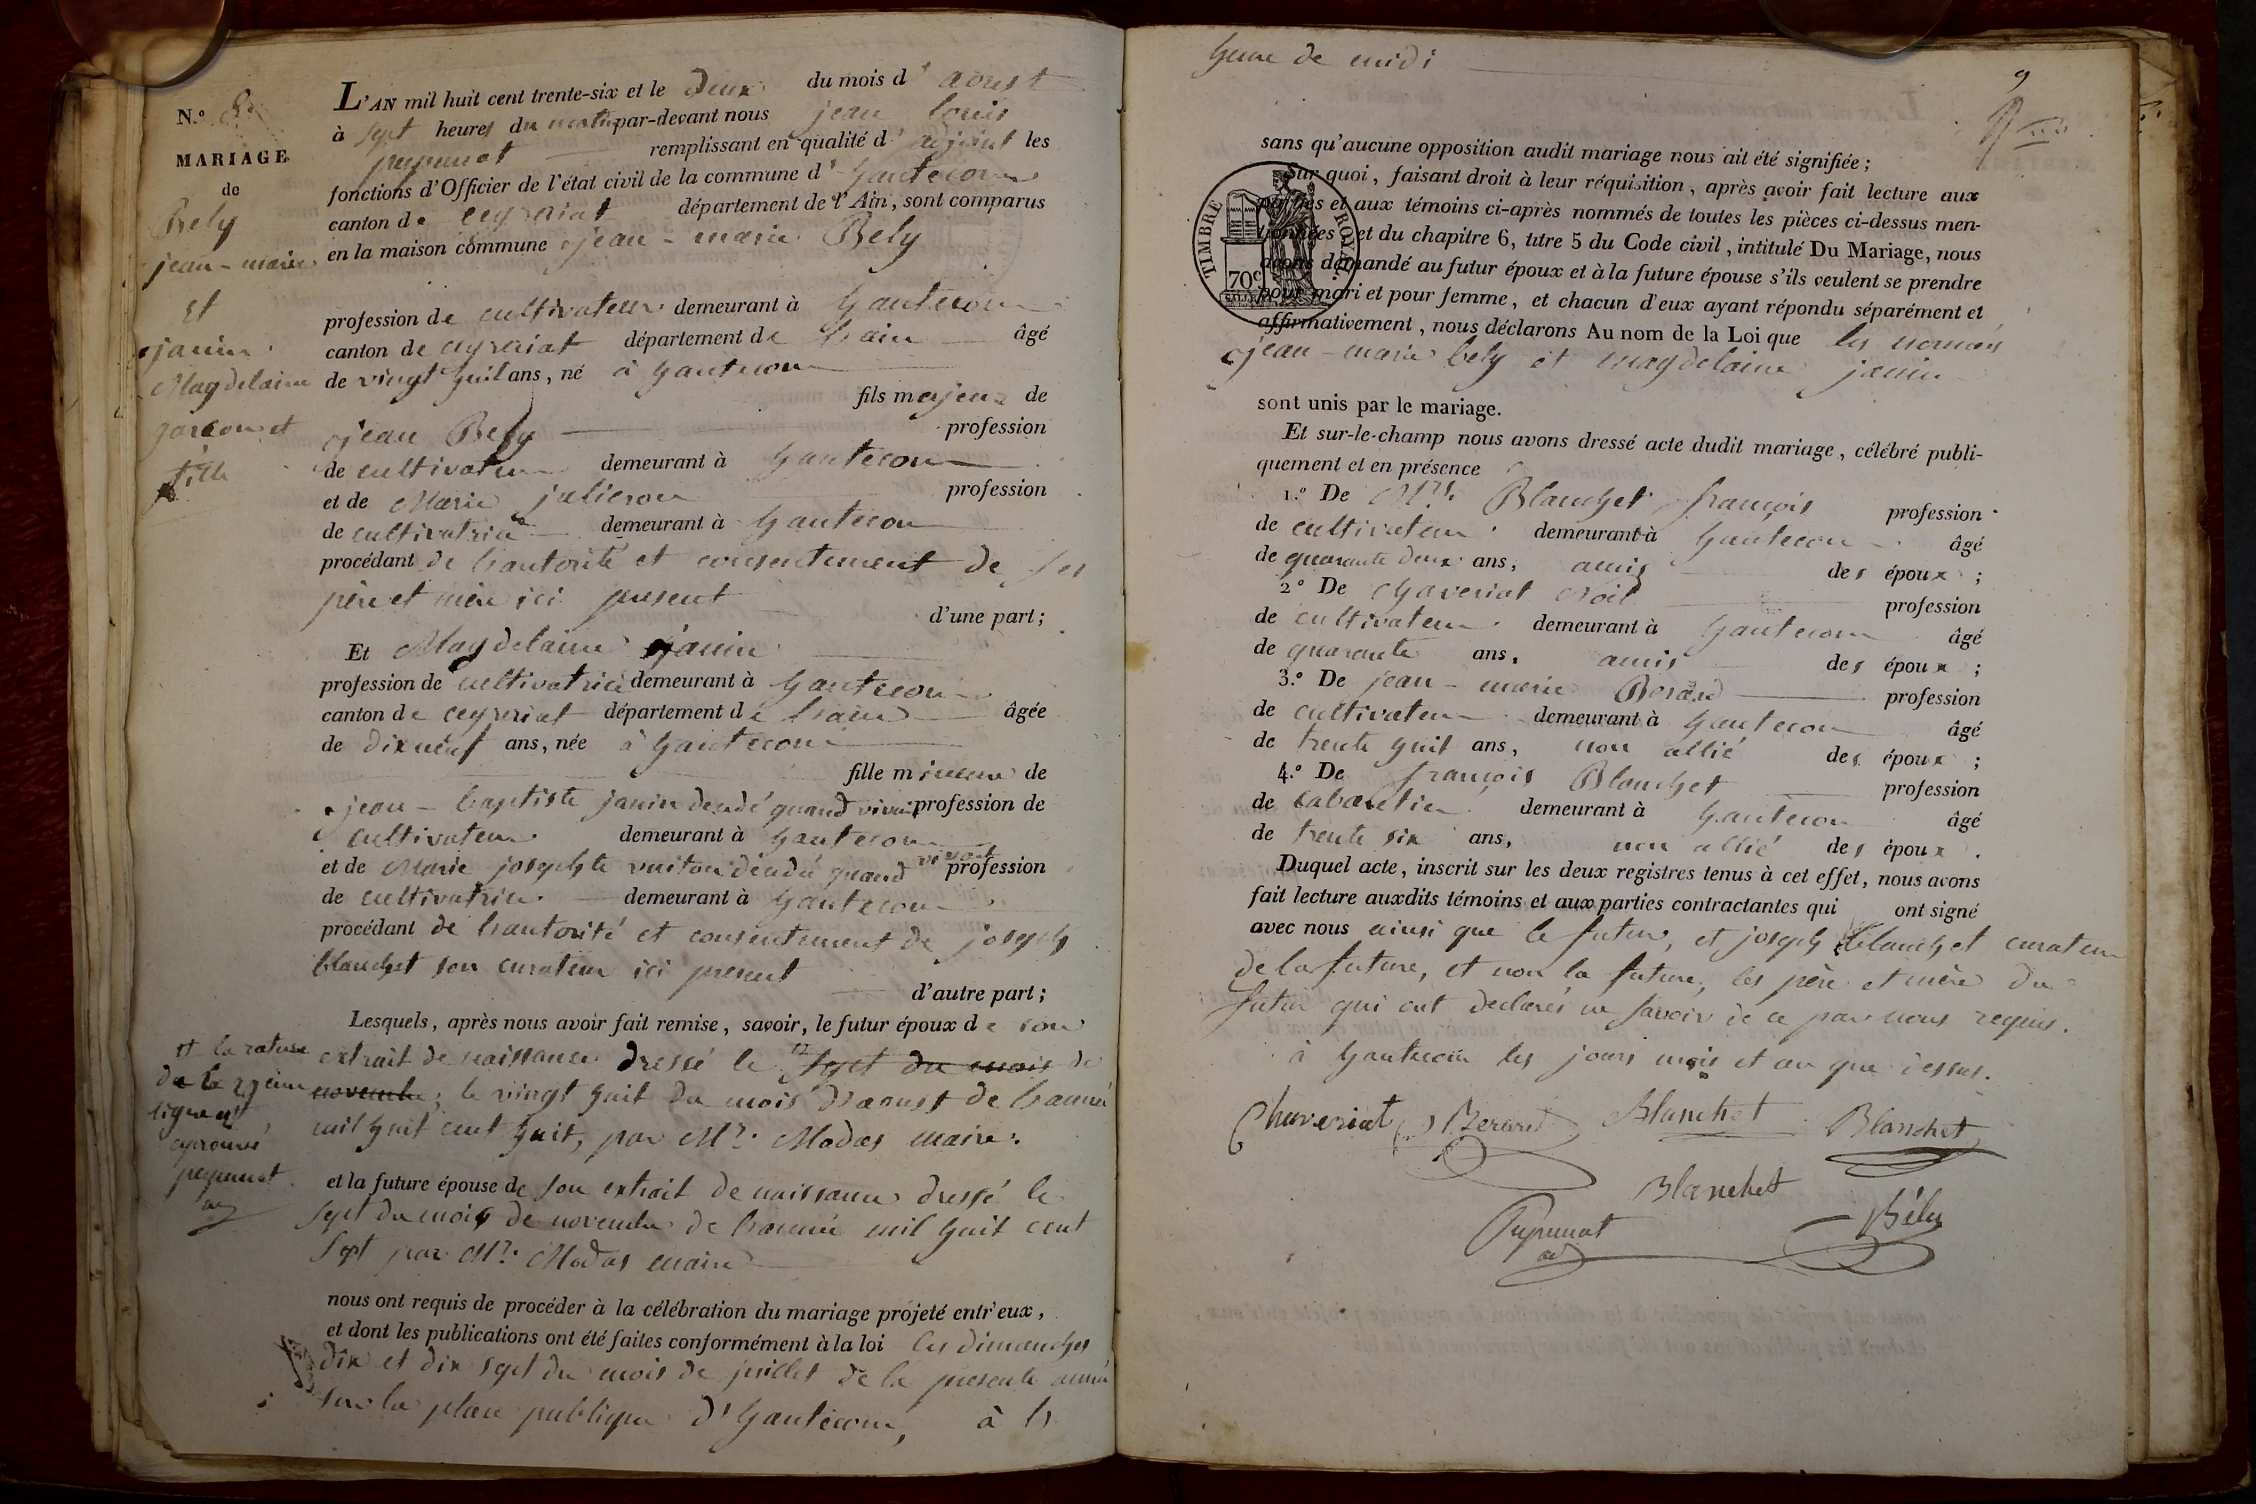 N.° 8
MARIAGE
de
Bely
jean-marie
Et
janin
Magdelaine
garçon et
fille
L'AN mil huit cent trente-six et le deux du mois d'aoust
à sept heures du matin par-devant nous jean louis
pupunat remplissant en qualité d'adjoint les
fonctions d'Officier de l'état civil de la commune d'hautecour
canton de ceyzeriat département de l'Ain, sont comparus
en la maison commune jean-marie Bely
profession de cultivateur demeurant à hautecour
canton de ceyzeriat département de l'ain âgé
de vingt huit ans, né à hautecour
fils majeur de
jean Bely profession
de cultivateur demeurant à hautecour
et de Marie profession
de cultivatrice demeurant à hautecour
procédant de l'autorité et consentement de ses
père et mère ici present
d'une part;
Et Magdelaine janin
profession de cultivatrice demeurant à hautecour
canton de ceyzeriat département de l'ain âgée
de dix neuf ans, née à hautecour
fille mineure de
jean-baptiste janin dcdé quand vivait profession de
cultivateur demeurant à hautecour
et de Marie josephte vuiton décdée quand vivait profession
de cultivatrice demeurant à hautecour
procédant de l'autorité et consentement de joseph
blanchet son curateur ici present
d'autre part;
Lesquels, après nous avoir fait remise, savoir, le futur époux de son
extrait de naissance dressé le sept du mois de
novembre; le vingt huit du mois d'aoust de l'année
mil huit cent huit, par Mr. Modas maire.
et la rature
de la 29eime
ligne
aprouvé
pupunat
adj
et la future épouse de son extrait de naissance dressé le
sept du mois de novembre de l'année mil huit cent
sept par Mr. Modas maire
nous ont requis de procéder à la célébration du mariage projeté entr'eux,
et dont les publications ont été faites conformément à la loi les dimanches
dix et dix sept du mois de juillet de la presente année
sur la place publique d'hautecour, à l'
heure de midi
9
sans qu'aucune opposition audit mariage nous ait été signifiée;
Sur quoi, faisant droit à leur réquisition, après avoir fait lecture aux
parties et aux témoins ci-après nommés de toutes les pièces ci-dessus men-
tionnées et du chapitre 6, titre 5 du Code civil, intitulé Du Mariage, nous
avons demandé au futur époux et à la future épouse s'ils veulent se prendre
pour mari et pour femme, et chacun d'eux ayant répondu séparément et
affirmativement, nous déclarons Au nom de la Loi que les només
jean-marie bely et magdelaine janin
TIMBRE ROYAL
70c
sont unis par le mariage.
Et sur-le-champ nous avons dressé acte dudit mariage, célébré publi-
quement et en présence
1.° De Mrs. Blanchet françois profession
de cultivateur demeurant à hautecour âgé
de quarante deux ans, amis des époux;
2.° De chaveriat profession
de cultivateur demeurant à hautecour âgé
de quarante ans, amis des époux;
3.° De jean-marie Berard profession
de cultivateur demeurant à hautecour âgé
de trente huit ans, non allié des époux;
4.° De françois Blanchet profession
de cabaretier demeurant à hautecour âgé
de trente six ans, non allié des époux.
Duquel acte, inscrit sur les deux registres tenus à cet effet, nous avons
fait lecture auxdits témoins et aux parties contractantes qui ont signé
avec nous ainsi que le futur, et joseph blanchet curateur
de la future, et non la future, les père et mère du
futur qui ont declarés ne savoir de ce par nous requis.
à hautecour les jours mois et an que dessus.
Chaveriat Berard Blanchet Blanchet
Blanchet
Pupunat Bély
adj